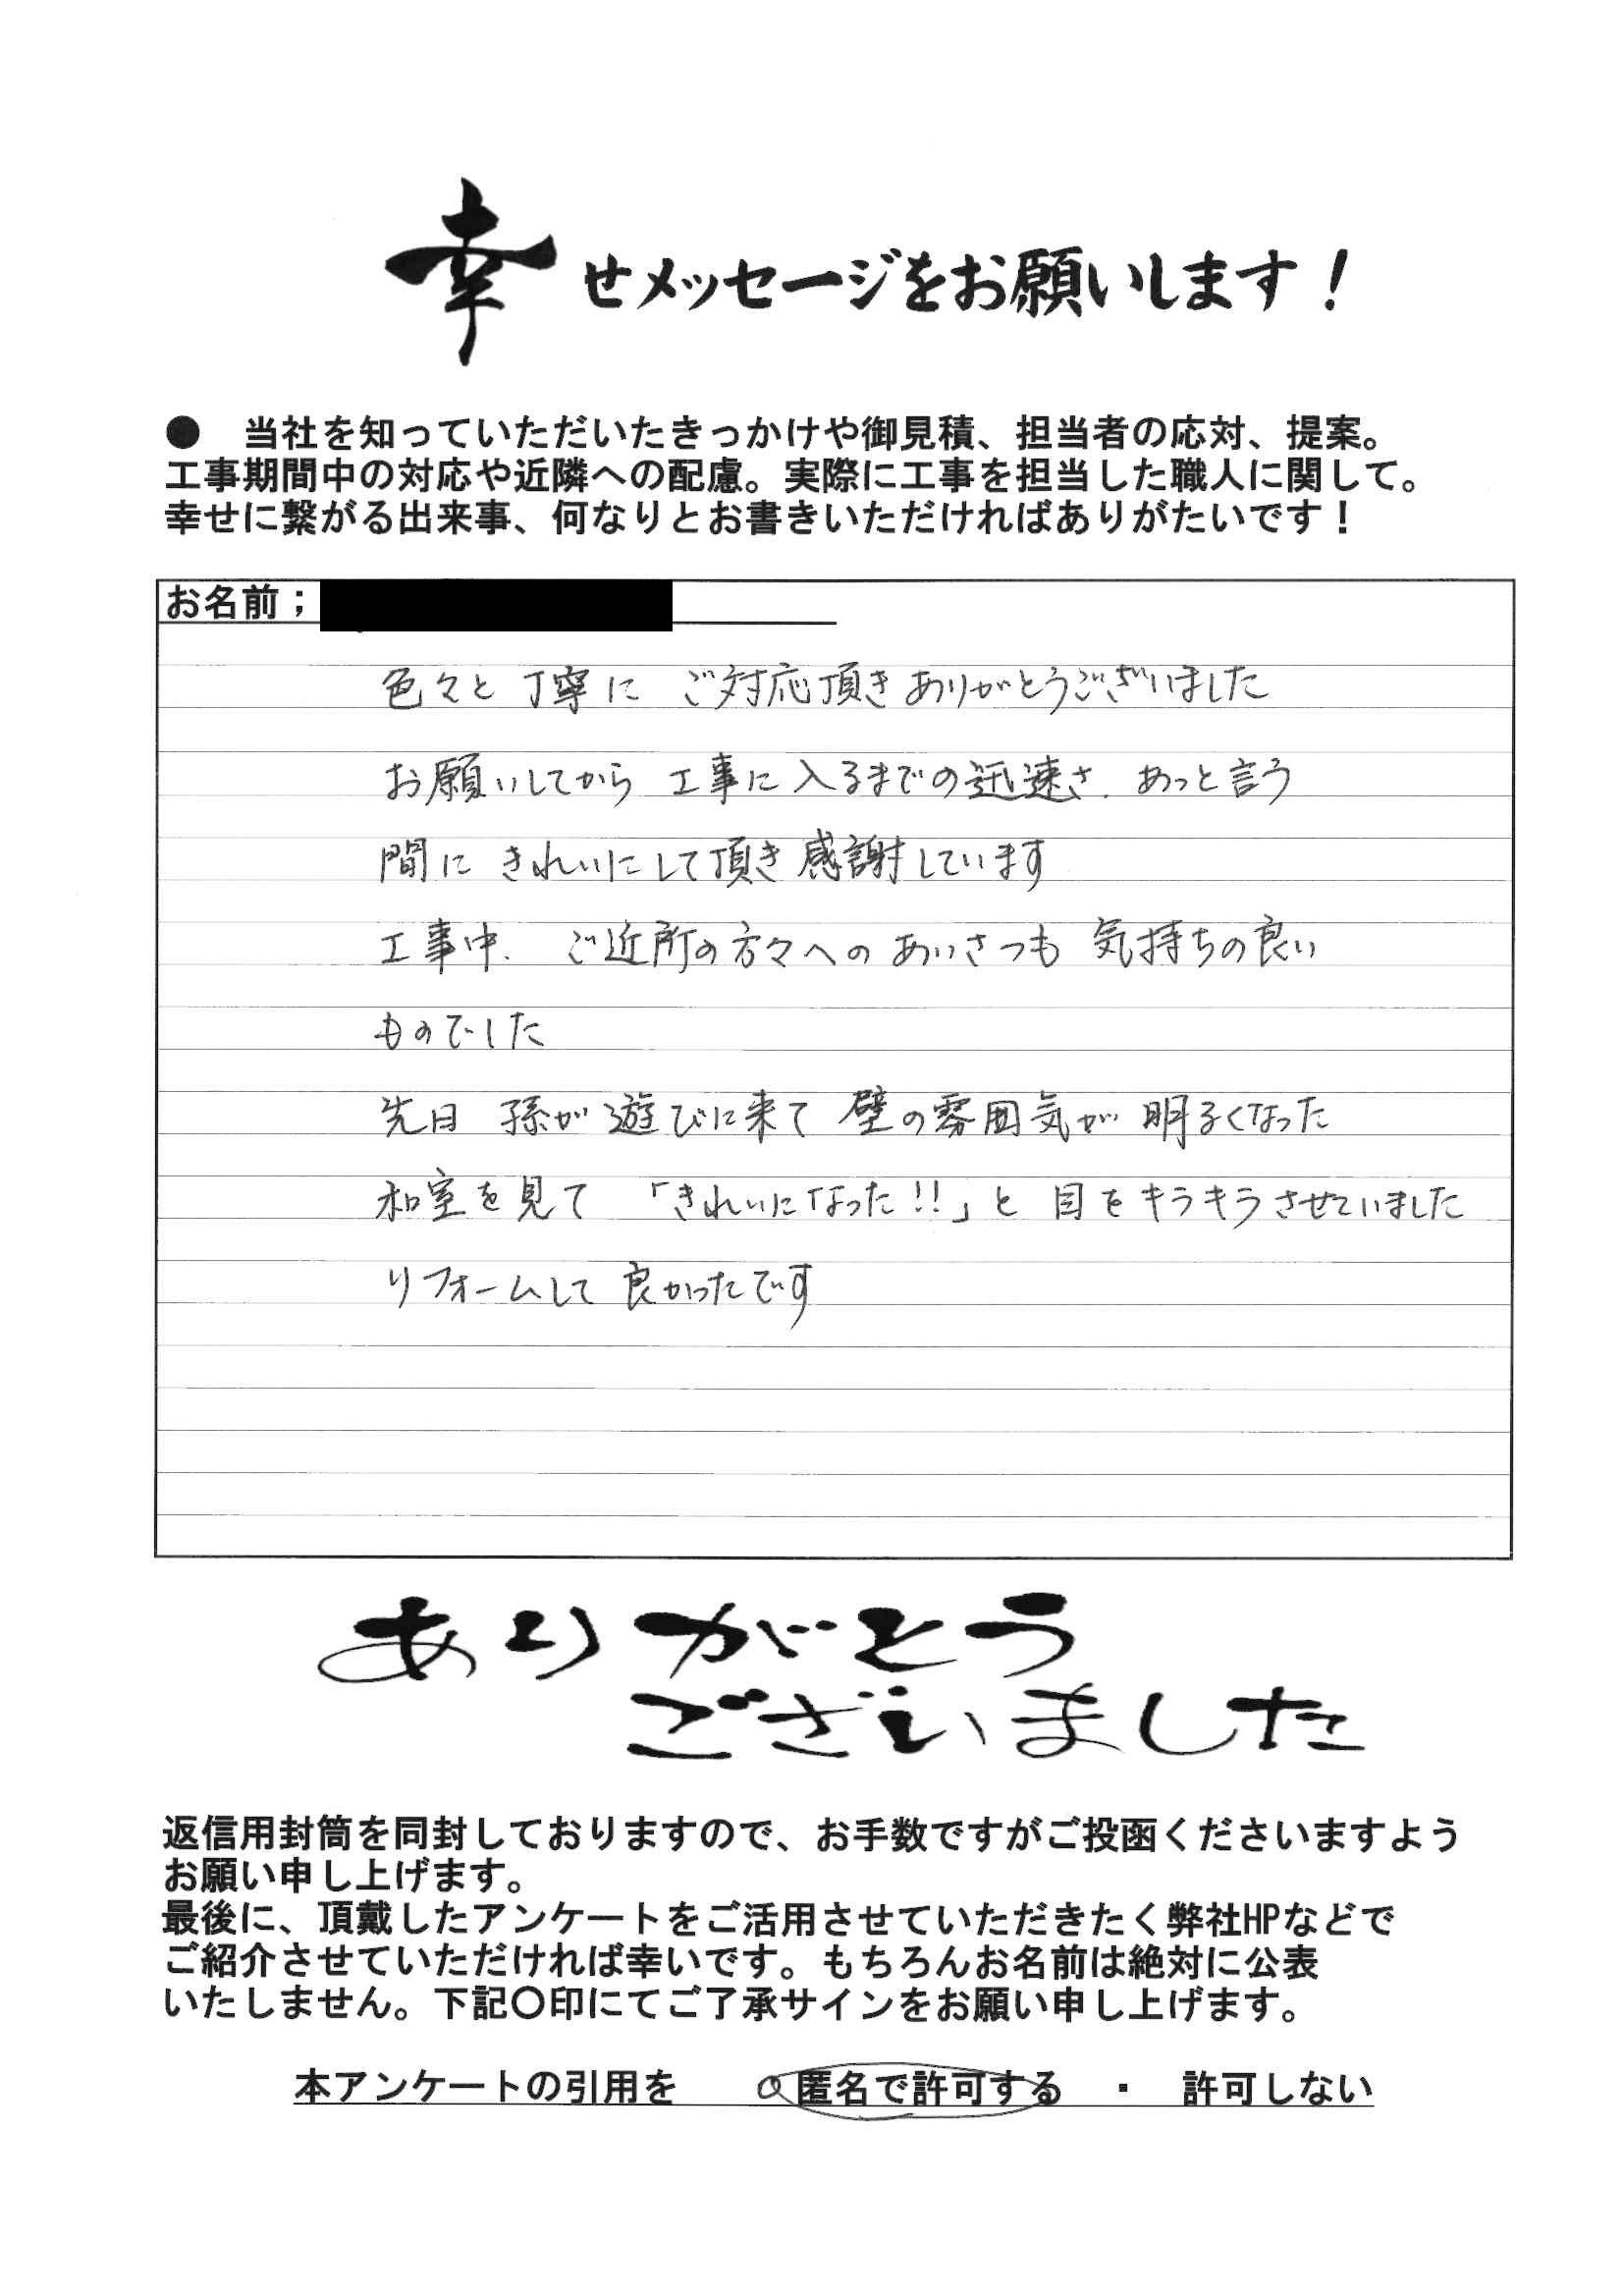 幸せメッセージをお願いします！
●　当社を知っていただいたきっかけや御見積、担当者の応対、提案。
工事期間中の対応や近隣への配慮。実際に工事を担当した職人に関して。
幸せに繋がる出来事、何なりとお書きいただければありがたいです！
お名前；
色々と 丁寧に ご対応頂きありがとうございました
お願いしてから 工事に入るまでの迅速さ、あっと言う
間に きれいにして頂き感謝しています
工事中、ご近所の方々へのあいさつも 気持ちの良い
ものでした
先日 孫が遊びに来て 壁の雰囲気が 明るくなった
和室を見て 「きれいになった!!」と 目をキラキラさせていました
リフォームして良かったです
ありがとう
ございました
返信用封筒を同封しておりますので、お手数ですがご投函くださいますよう
お願い申し上げます。
最後に、頂戴したアンケートをご活用させていただきたく弊社HPなどで
ご紹介させていただければ幸いです。もちろんお名前は絶対に公表
いたしません。下記〇印にてご了承サインをお願い申し上げます。
本アンケートの引用を　匿名で許可する　・　許可しない